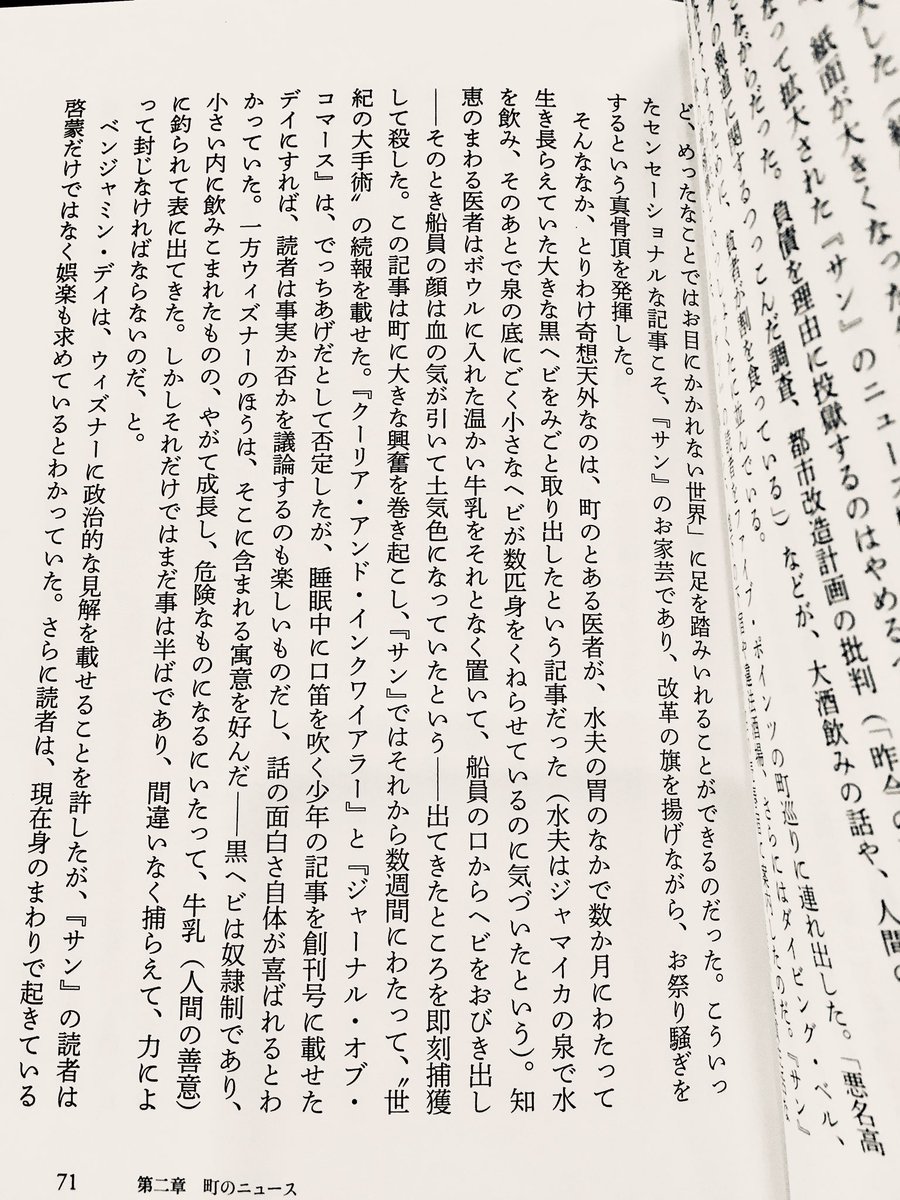 紙面が大きくなった
なって拡大された『サン』のニュース
がらだった。負債を理由に投獄するのはやめるべ
に関するつっこんだ調査、都市改造計画の批判（「昨今の
割を食っている」）などが、大酒飲みの話や、人間の
に並んでいる。
ファイブ・ポインツの町巡りに連れ出した。「悪名高
酒場、さらにはダイビング・ベル、
『サン』
ど、めったなことではお目にかかれない世界」に足を踏みいれることができるのだった。こういっ
たセンセーショナルな記事こそ、『サン』のお家芸であり、改革の旗を揚げながら、お祭り騒ぎを
するという真骨頂を発揮した。
そんななか、とりわけ奇想天外なのは、町のとある医者が、水夫の胃のなかで数か月にわたって
生き長らえていた大きな黒ヘビをみごと取り出したという記事だった（水夫はジャマイカの泉で水
を飲み、そのあとで泉の底にごく小さなヘビが数匹身をくねらせているのに気づいたという）。知
恵のまわる医者はボウルに入れた温かい牛乳をそれとなく置いて、船員の口からヘビをおびき出し
――そのとき船員の顔は血の気が引いて土気色になっていたという――出てきたところを即刻捕獲
して殺した。この記事は町に大きな興奮を巻き起こし、『サン』ではそれから数週間にわたって、〝世
紀の大手術〟の続報を載せた。『クーリア・アンド・インクワイアラー』と『ジャーナル・オブ・
コマース』は、でっちあげだとして否定したが、睡眠中に口笛を吹く少年の記事を創刊号に載せた
デイにすれば、読者は事実か否かを議論するのも楽しいものだし、話の面白さ自体が喜ばれるとわ
かっていた。一方ウィズナーのほうは、そこに含まれる寓意を好んだ――黒ヘビは奴隷制であり、
小さい内に飲みこまれたものの、やがて成長し、危険なものになるにいたって、牛乳（人間の善意）
に釣られて表に出てきた。しかしそれだけではまだ事は半ばであり、間違いなく捕らえて、力によ
って封じなければならないのだ、と。
ベンジャミン・デイは、ウィズナーに政治的な見解を載せることを許したが、『サン』の読者は
啓蒙だけではなく娯楽も求めているとわかっていた。さらに読者は、現在身のまわりで起きている
71　第二章　町のニュース